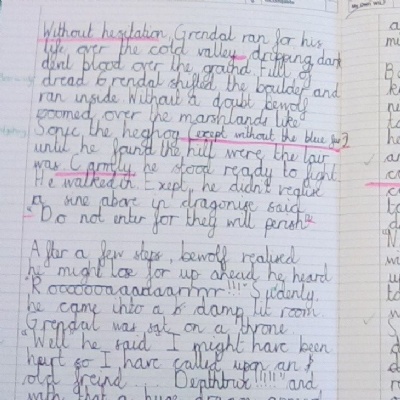 Without hesitation, Grendal ran for his
life over the cold valley dripping dark
demt blood over the ground. Full of
dread Grendal shifted the boulder and
ran inside. Without a doubt bewolf
zoomed over the marshlands like
Sonic the hegehog (except without the blue
until he found the hill were the lair
was. Carmly he stood ready to fight.
He walked in. Exept, he didn't realise
a sine above in dragonise said
"Do not enter for they will perish"
After a few steps, bewolf realised
he might lose for up ahead he heard
"Roooooaaaadaarrrrr!!!" Suddenly,
he came into a damp lit room.
Grendal was sat on a throne.
"Well he said I might have been
hurt so I have called upon an
old freind.... Deathbout!!!!!" and,
with that a huge dragon